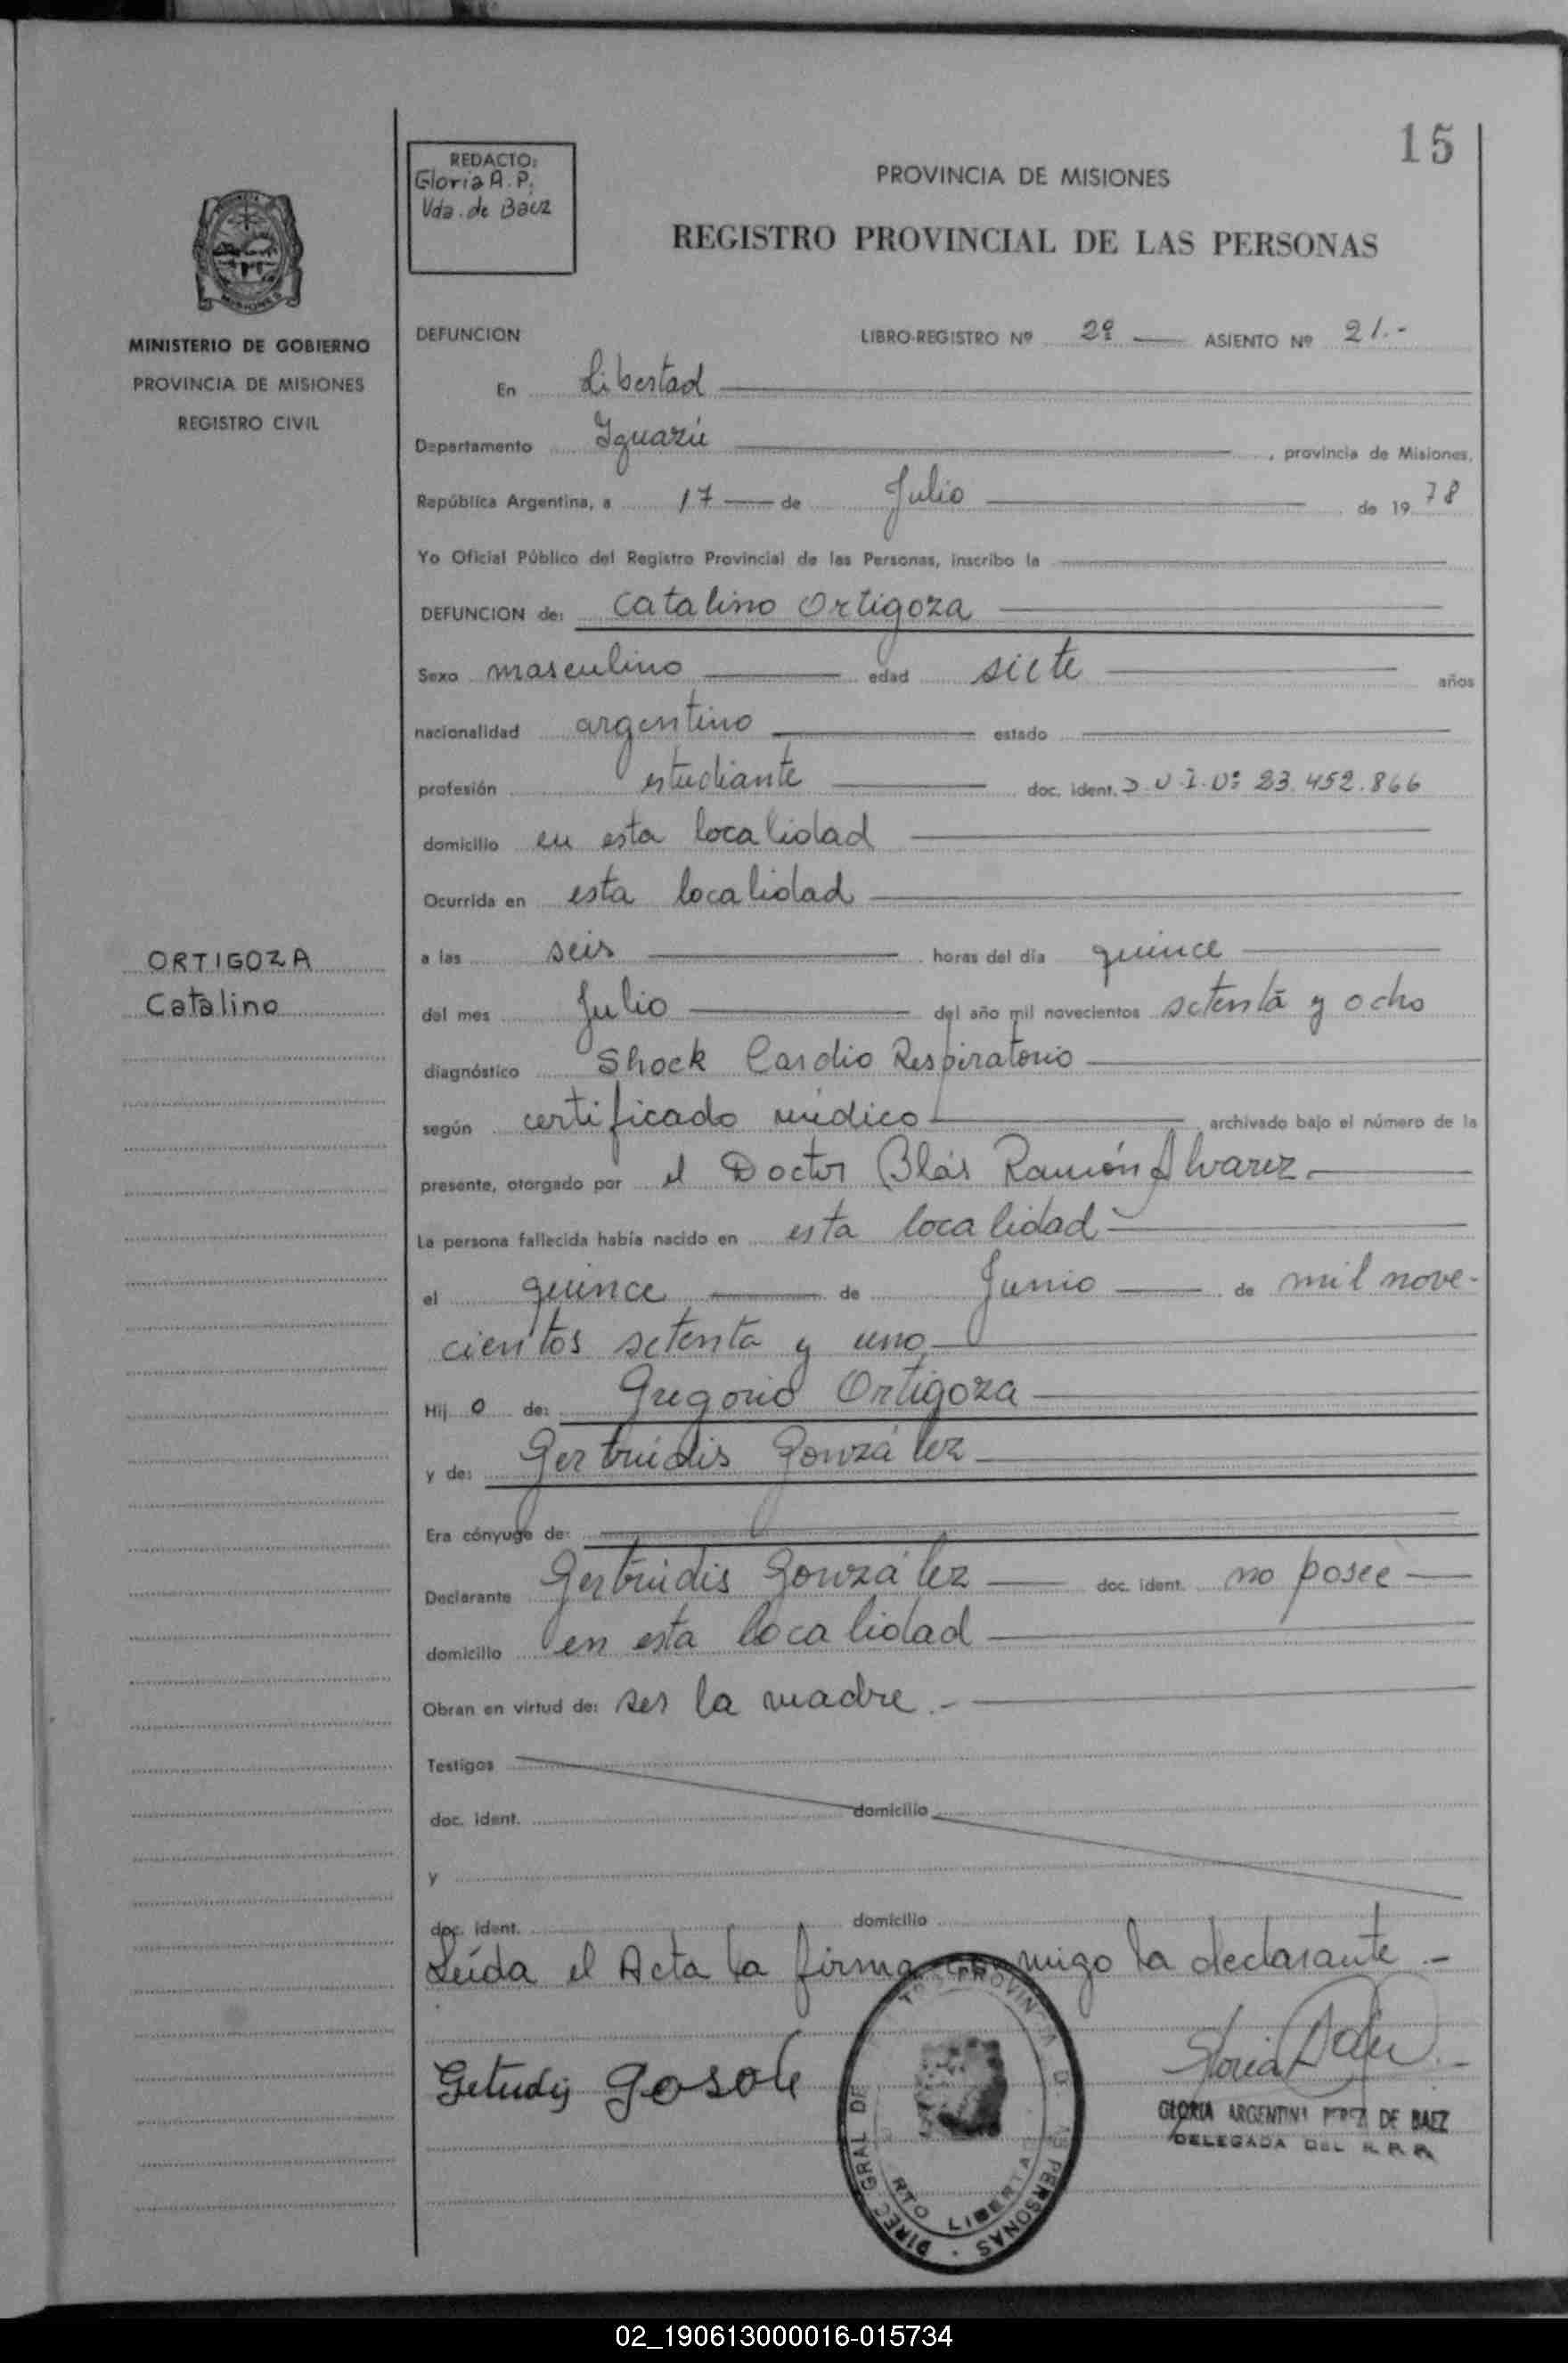 15
REDACTO:
Gloria A. P.
Vda. de Baez
PROVINCIA DE MISIONES
REGISTRO PROVINCIAL DE LAS PERSONAS
MISIONES
MINISTERIO DE GOBIERNO
PROVINCIA DE MISIONES
REGISTRO CIVIL
DEFUNCION LIBRO-REGISTRO Nº 2º ASIENTO Nº 21.-
En Libertad
Departamento Iguazú , provincia de Misiones,
República Argentina, a 17 de Julio de 19 78
Yo Oficial Público del Registro Provincial de las Personas, inscribo la
DEFUNCION de: Catalino Ortigoza
Sexo masculino edad siete años
nacionalidad argentino estado
profesión estudiante doc. ident. 23.452.866
domicilio en esta localidad
Ocurrida en esta localidad
ORTIGOZA
Catalino
a las seis horas del día quince
del mes Julio del año mil novecientos setenta y ocho
diagnóstico Shock Cardio Respiratorio
según certificado médico archivado bajo el número de la
presente, otorgado por el Doctor Blás Ramón Alvarez.
La persona fallecida había nacido en esta localidad
el quince de Junio de mil nove-
cientos setenta y uno
Hij o de: Gregorio Ortigoza
y de: Gertrudis González
Era cónyuge de:
Declarante Gertrudis González doc. ident. no posee
domicilio en esta localidad
Obran en virtud de: ser la madre.-
Testigos
doc. ident. domicilio
y
doc. ident. domicilio
Leída el Acta la firma conmigo la declarante.-
Getudij gosole
GLORIA ARGENTINA PEREZ DE BAEZ
DELEGADA DEL R.P.P.
DIREC GRAL DE PROVINCIA PERSONAS
LIBERTA
02_190613000016-015734